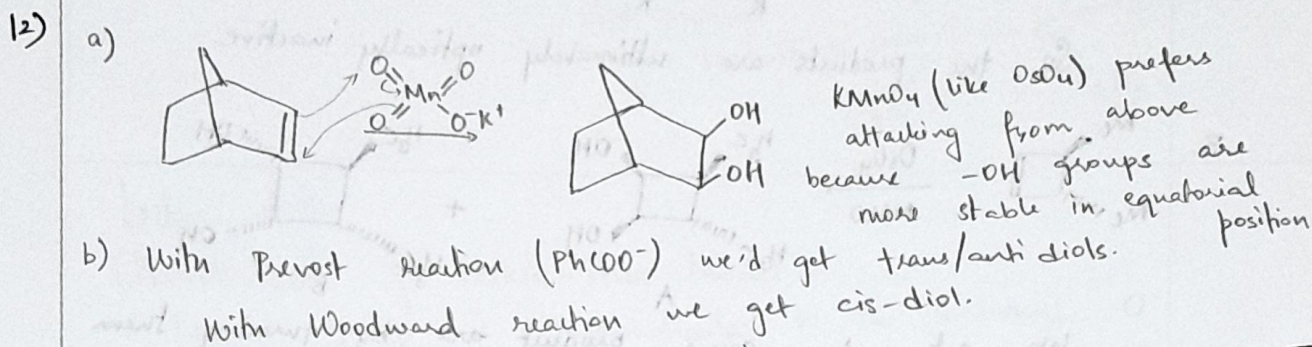 12)
a)
O O
Mn
O O⁻K⁺
OH
OH
KMnO4 (like OsO4) prefers
attacking from above
because -OH groups are
more stable in equatorial
position
b) With Prevost reaction (PhCOO⁻) we'd get trans/anti diols.
With Woodward reaction we get cis-diol.